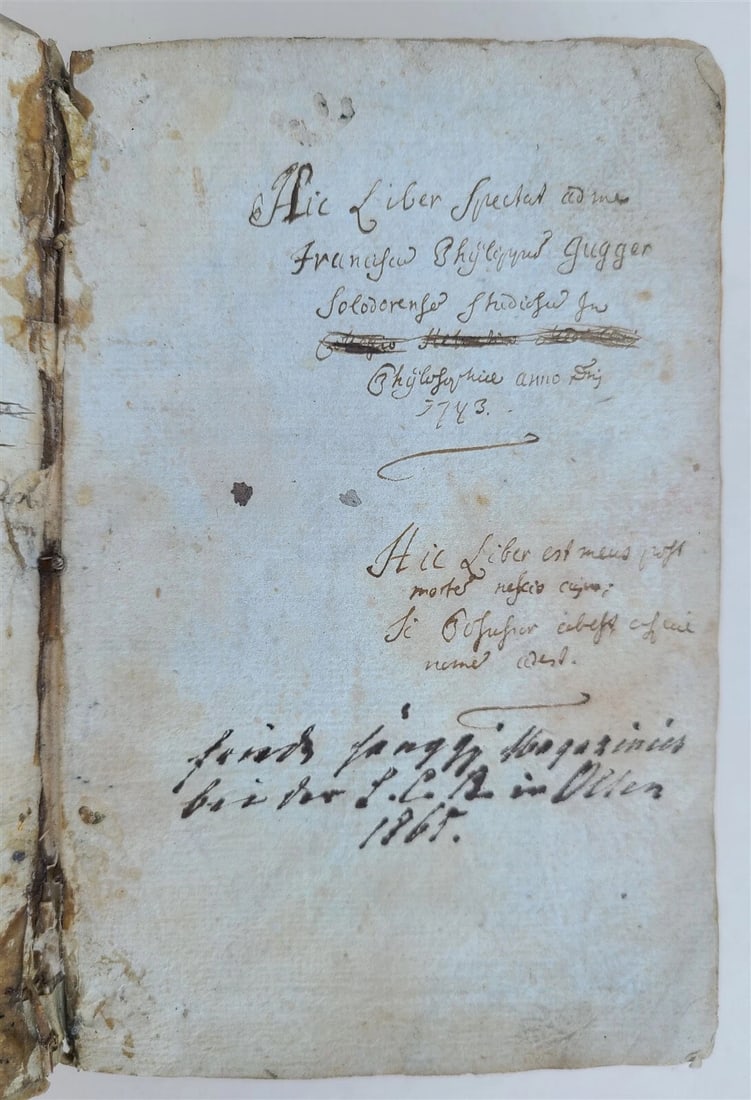 Hic Liber Spectat ad me
Franciscu Phÿlippu Gugger
Solodorense Studiosu In
Phÿlosophiae anno Dni
1743.
Hic Liber est meus post
morte nescio cujus;
Si
nome adest.
Fried. Hänggi Magazinier
bei der S. C. B. in Olten
1865.